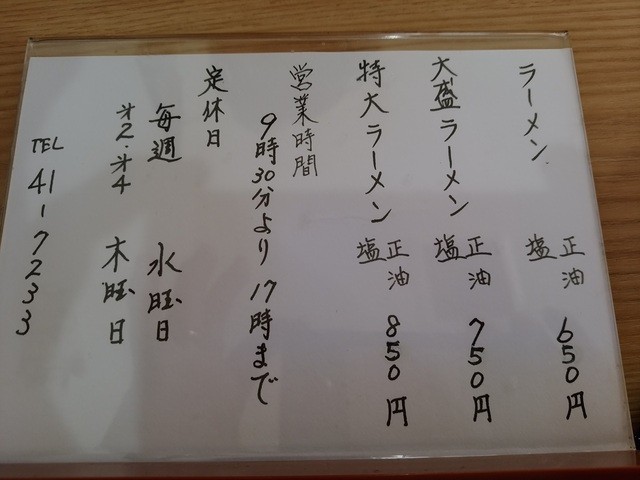 ラーメン 正油 塩 650円
大盛ラーメン 正油 塩 750円
特大ラーメン 正油 塩 850円
営業時間
9時30分より 17時まで
定休日
毎週 水曜日
才2・才4 木曜日
TEL 41-7233